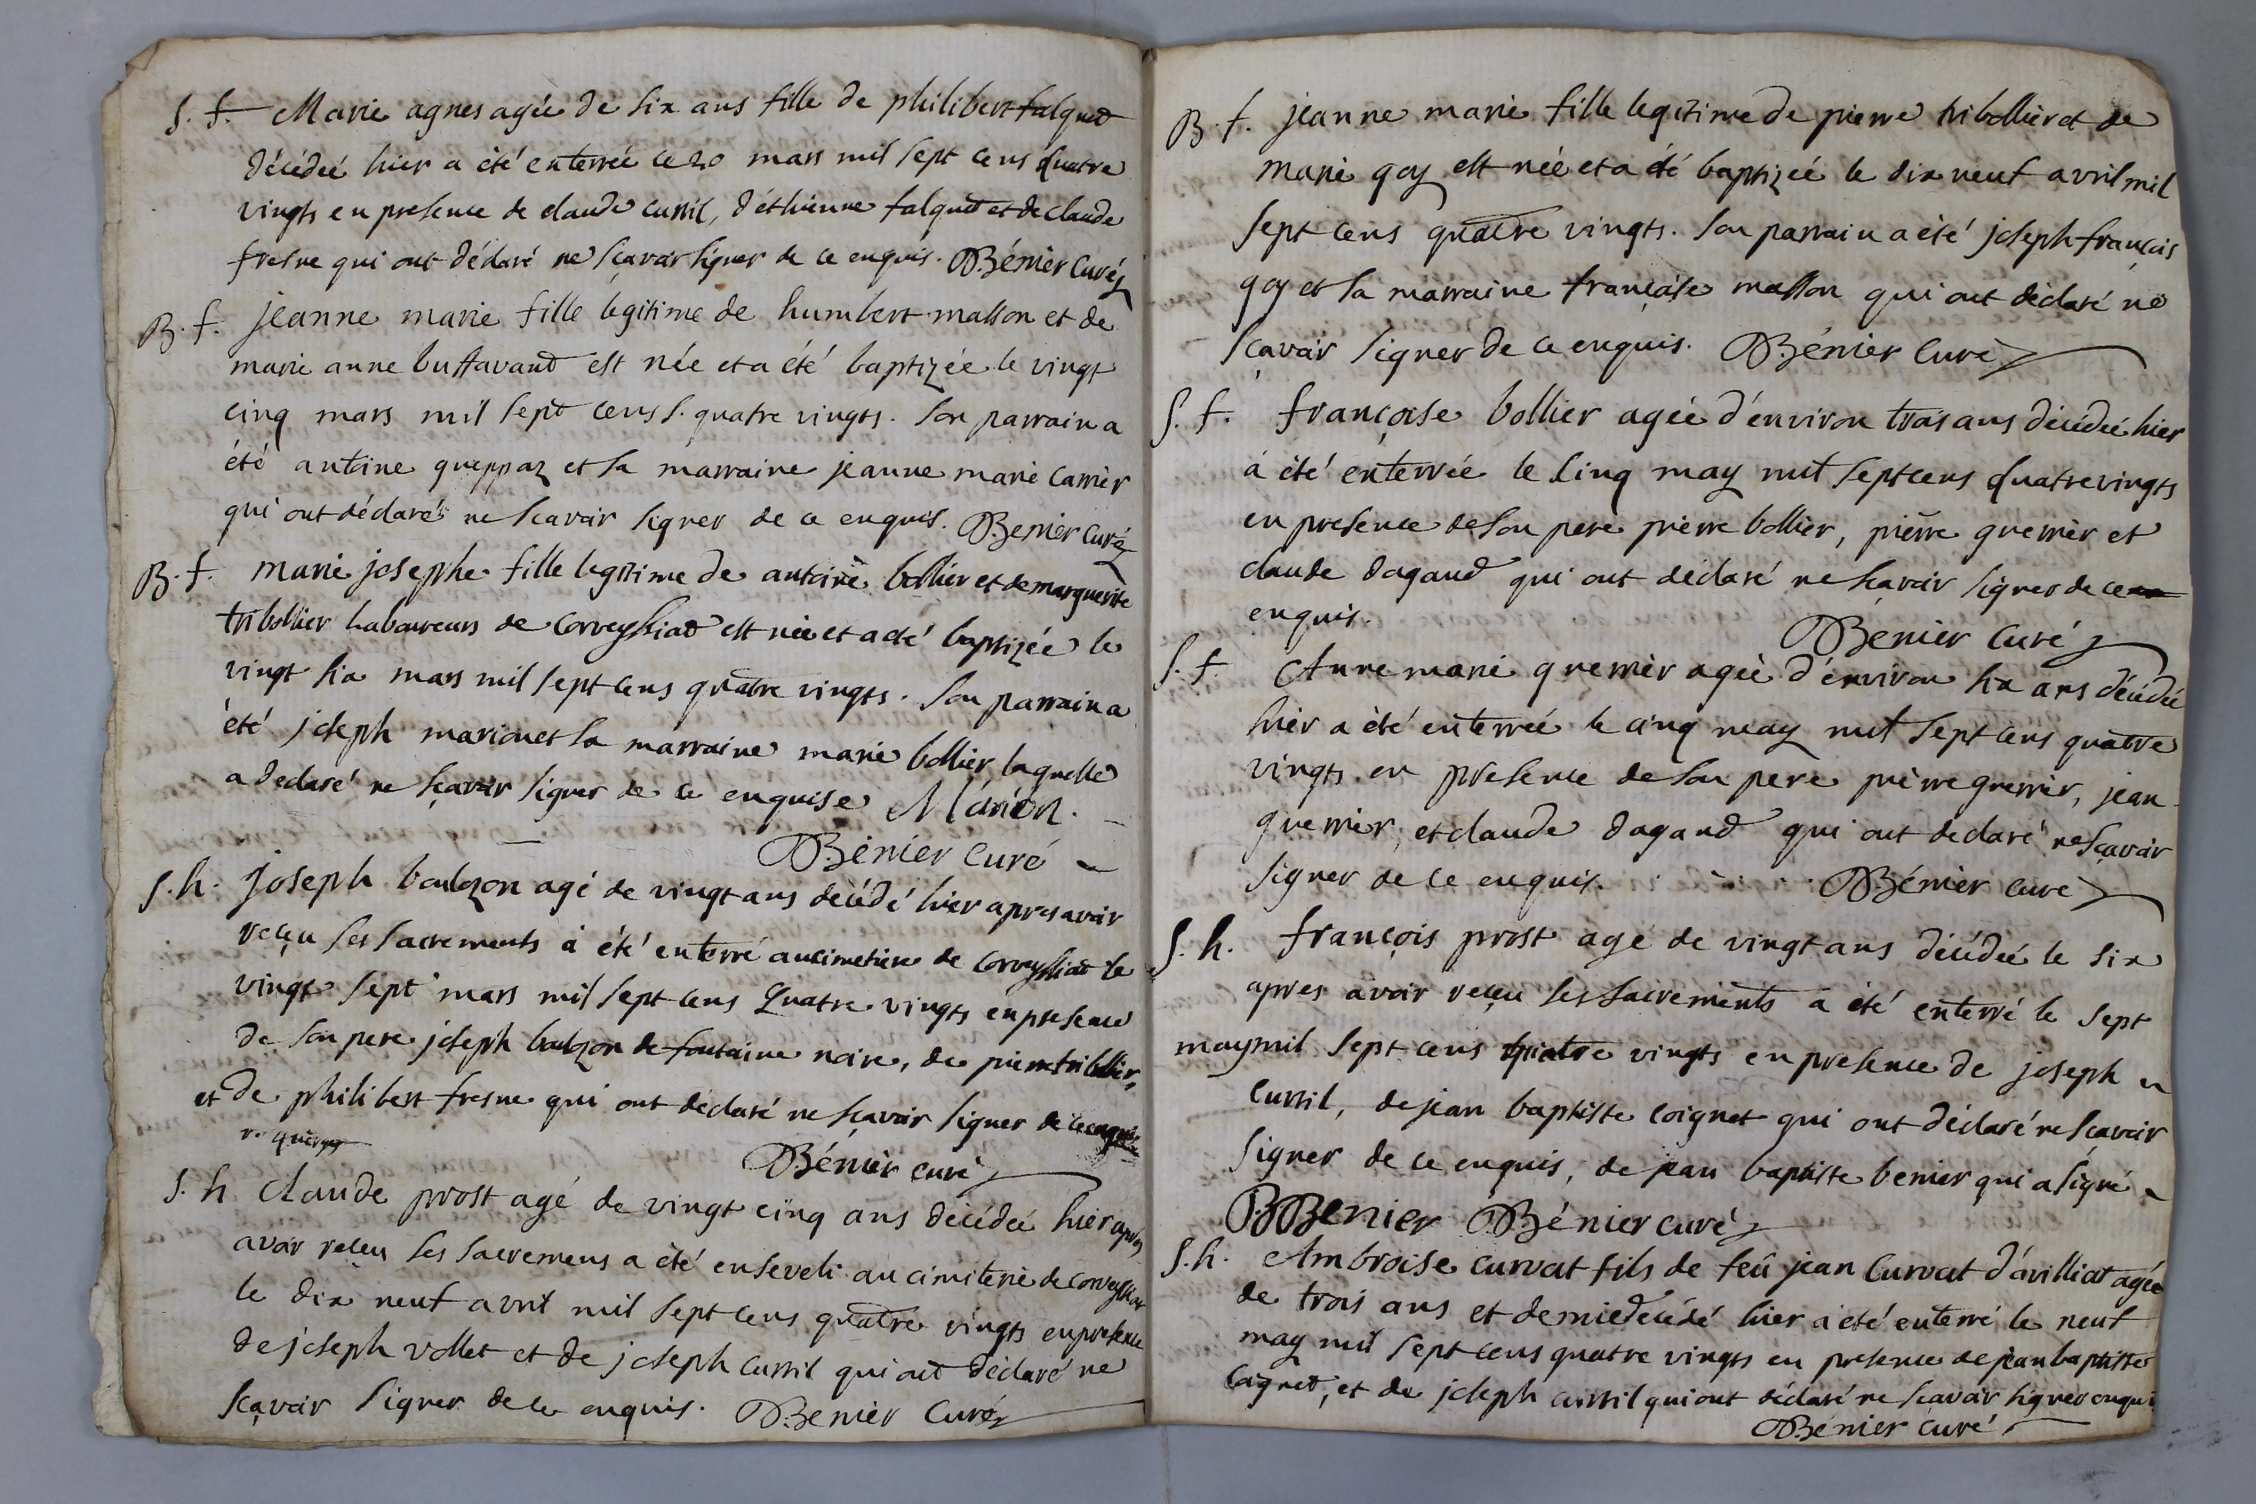 S. f. Marie agnes agée de six ans fille de philibert falquet
décédeé hier a été enterreé ce 20 mars mil sept cens quatre
vingts en presence de claude curtil, d'éthienne falquet et de claude
fresne qui ont déclaré ne sçavoir signer de ce enquis. Bénier Curé
B. f. jeanne marie fille legitime de humbert masson et de
marie anne buffavand est née et a été baptizée le vingt
cinq mars mil sept cens S. quatre vingts. Son parrain a
été antoine gueppaz et sa marraine jeanne marie Carrier
qui ont déclaré ne scavoir signer de ce enquis. Benier Curé
B. f. marie josephe fille legitime de antoine bollier et de marguerite
tribollier laboureurs de Corveyssiat est née et a été baptizée le
vingt six mars mil sept cens quatre vingts. Son parrain a
été joseph marion et sa marraine marie bollier laquelle
a declaré ne sçavoir signer de ce enquise Marion.
Bénier Curé
S. h. joseph agé de vingt ans décédé hier apres avoir
reçeu ses sacrements à été enterré au cimetiere de Corveyssiat le
vingt sept mars mil sept cens quatre vingts en presence
de son pere joseph de fontaine noire, de pierre tribollier,
et de philibert fresne qui ont déclaré ne sçavoir signer de ce enquis
Bénier curé
S. h Claude prost agé de vingt cinq ans décédeé hier apres
avoir reçeu ses sacremens a été enseveli au cimiterie de corveyssiat
le dix neuf avril mil sept cens quatre vingts en presence
de joseph vollet et de joseph curtil qui ont déclaré ne
sçavoir signer de ce enquis. Benier Curé
B. f. jeanne marie fille legitime de pierre tribollier et de
marie goy est née et a été baptizeé le dix neuf avril mil
sept cens quatre vingts. Son parrain a été joseph françois
goy et sa marraine françoise masson qui ont déclaré ne
sçavoir signer de ce enquis. Bénier Curé
S. f. françoise bollier agée d'environ trois ans décédeé hier
à été enterrée le cinq may mil sept cens quatre vingts
en presence de son pere pierre bollier, pierre guerrier et
claude dagand qui ont déclaré ne sçavoir signer de ce en
enquis.
Benier Curé
S. f. Anne marie guerrier ageé d'environ six ans décédé
hier a été enterreé le cinq may mil sept cens quatre
vingts en presence de son pere pierre guerrier, jean
guerrier, et claude dagand qui ont declaré ne sçavoir
signer de ce enquis. Bénier Curé
S. h. françois prost agé de vingt ans décédeé le six
apres avoir reçeu ses sacrements a été enterré le sept
may mil sept cens quatre vingts en presence de joseph
Curtil, de jean baptiste coignet qui ont déclaré ne scavoir
signer de ce enquis, de jean baptiste benier qui a signé
JBBenier Bénier curé
S. h. Ambroise curvat fils de feû jean Curvat d'avilliat agée
de trois ans et demie décédé hier a été enterré le neuf
may mil sept cens quatre vingts en presence de jean baptiste
Cagnet, et de joseph curtil qui ont déclaré ne scavoir signer enquis
Bénier Curé